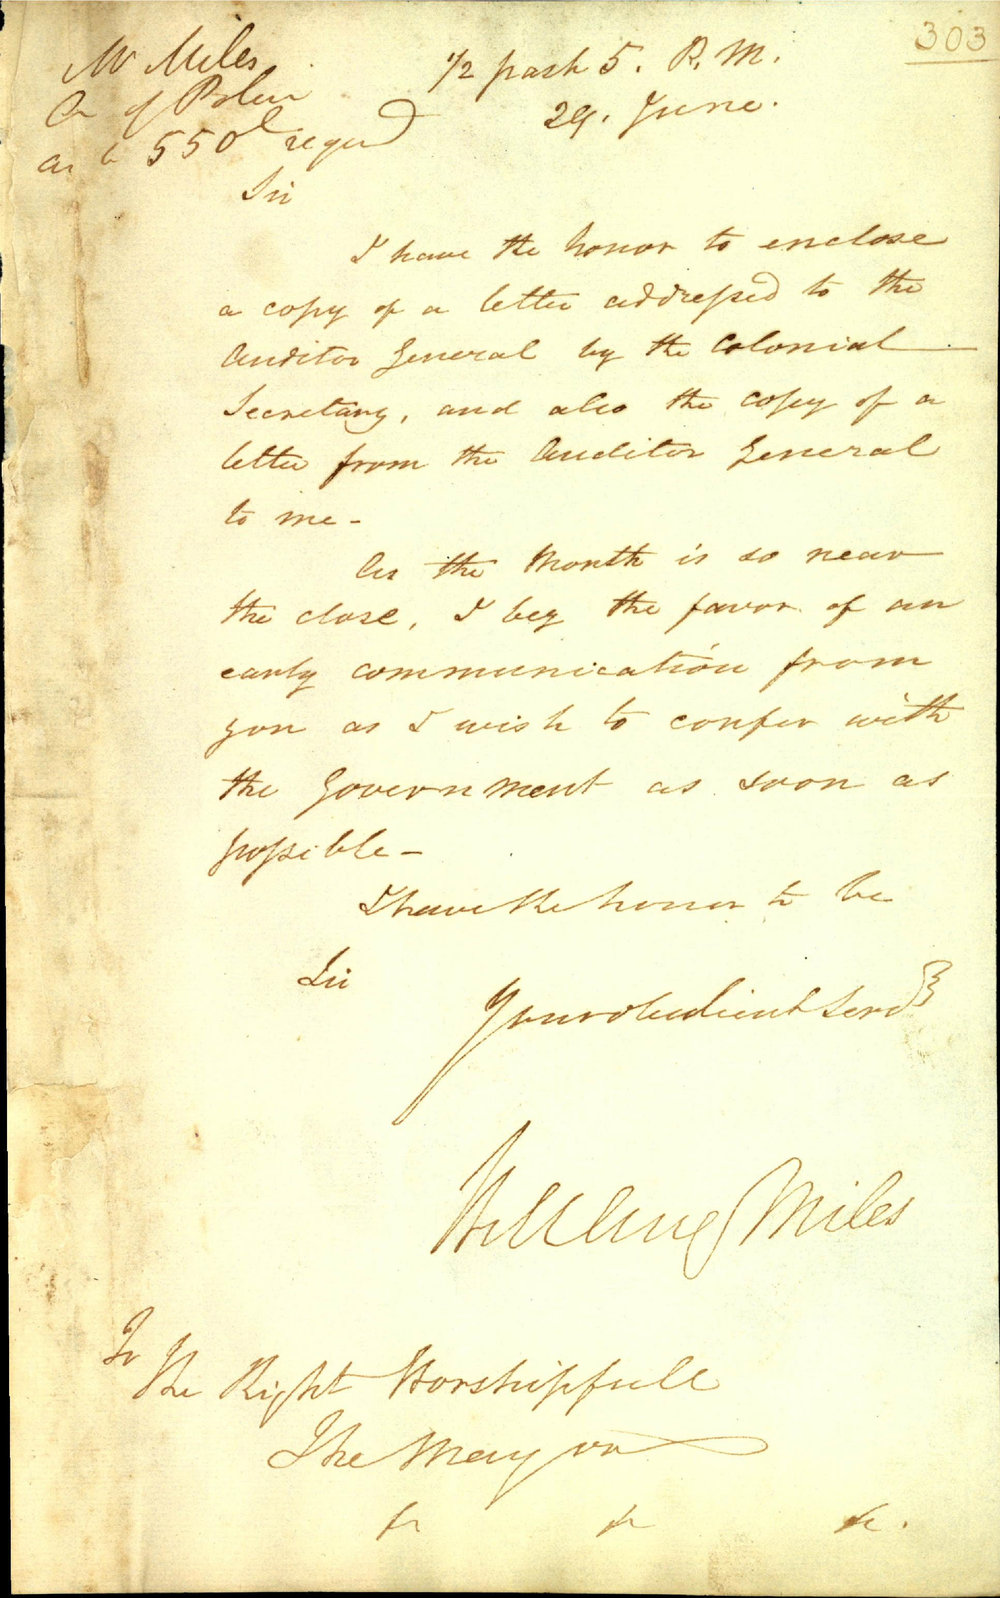 303
Mr Miles
Cr of Police
as to 550l reqred
1/2 past 5. P.M.
29. June.
Sir
I have the honor to enclose
a copy of a letter addressed to the
Auditor General by the Colonial
Secretary, and also the copy of a
letter from the Auditor General
to me -
As the Month is so near
the close, I beg the favor of an
early communication from
you as I wish to confer with
the Government as soon as
possible -
I have the honor to be
Sir
Your obedient Serv
Miles
To
The Right Worshipfull
The Mayor
&c &c &c.